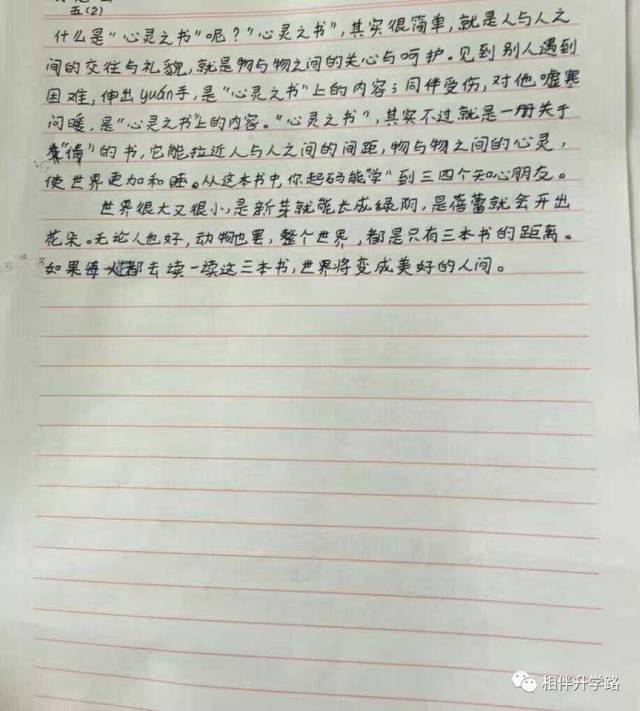 五(2)
什么是"心灵之书"呢?"心灵之书",其实很简单,就是人与人之
间的交往与礼貌,就是物与物之间的关心与呵护。见到别人遇到
困难,伸出yuán手,是"心灵之书"上的内容;同伴受伤,对他嘘寒
问暖,是"心灵之书"上的内容。"心灵之书",其实不过就是一册关于
"情"的书,它能拉近人与人之间的间距,物与物之间的心灵,
使世界更加和睡。从这本书中,你起码能"学"到三四个知心朋友。
世界很大又很小,是新芽就能长成绿荫,是蓓蕾就会开出
花朵。无论人也好,动物也罢,整个世界,都是只有三本书的距离。
如果每人都去读一读这三本书,世界将变成美好的人间。
相伴升学路